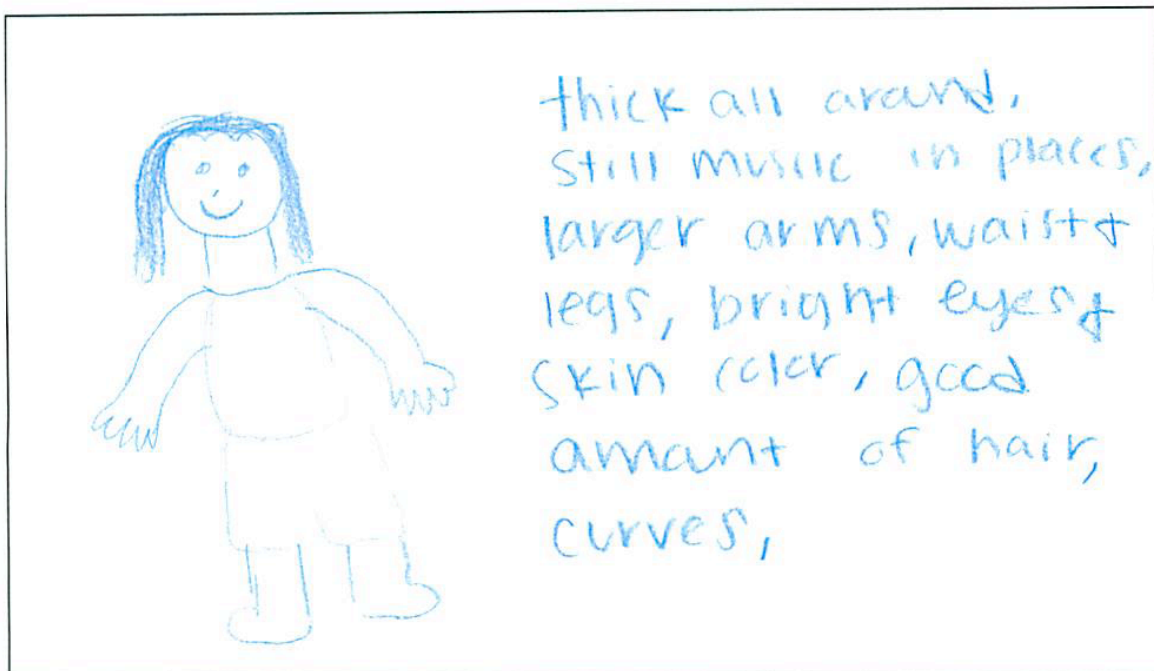 thick all around,
still muscle in places,
larger arms, waist &
legs, bright eyes &
skin color, good
amount of hair,
curves,